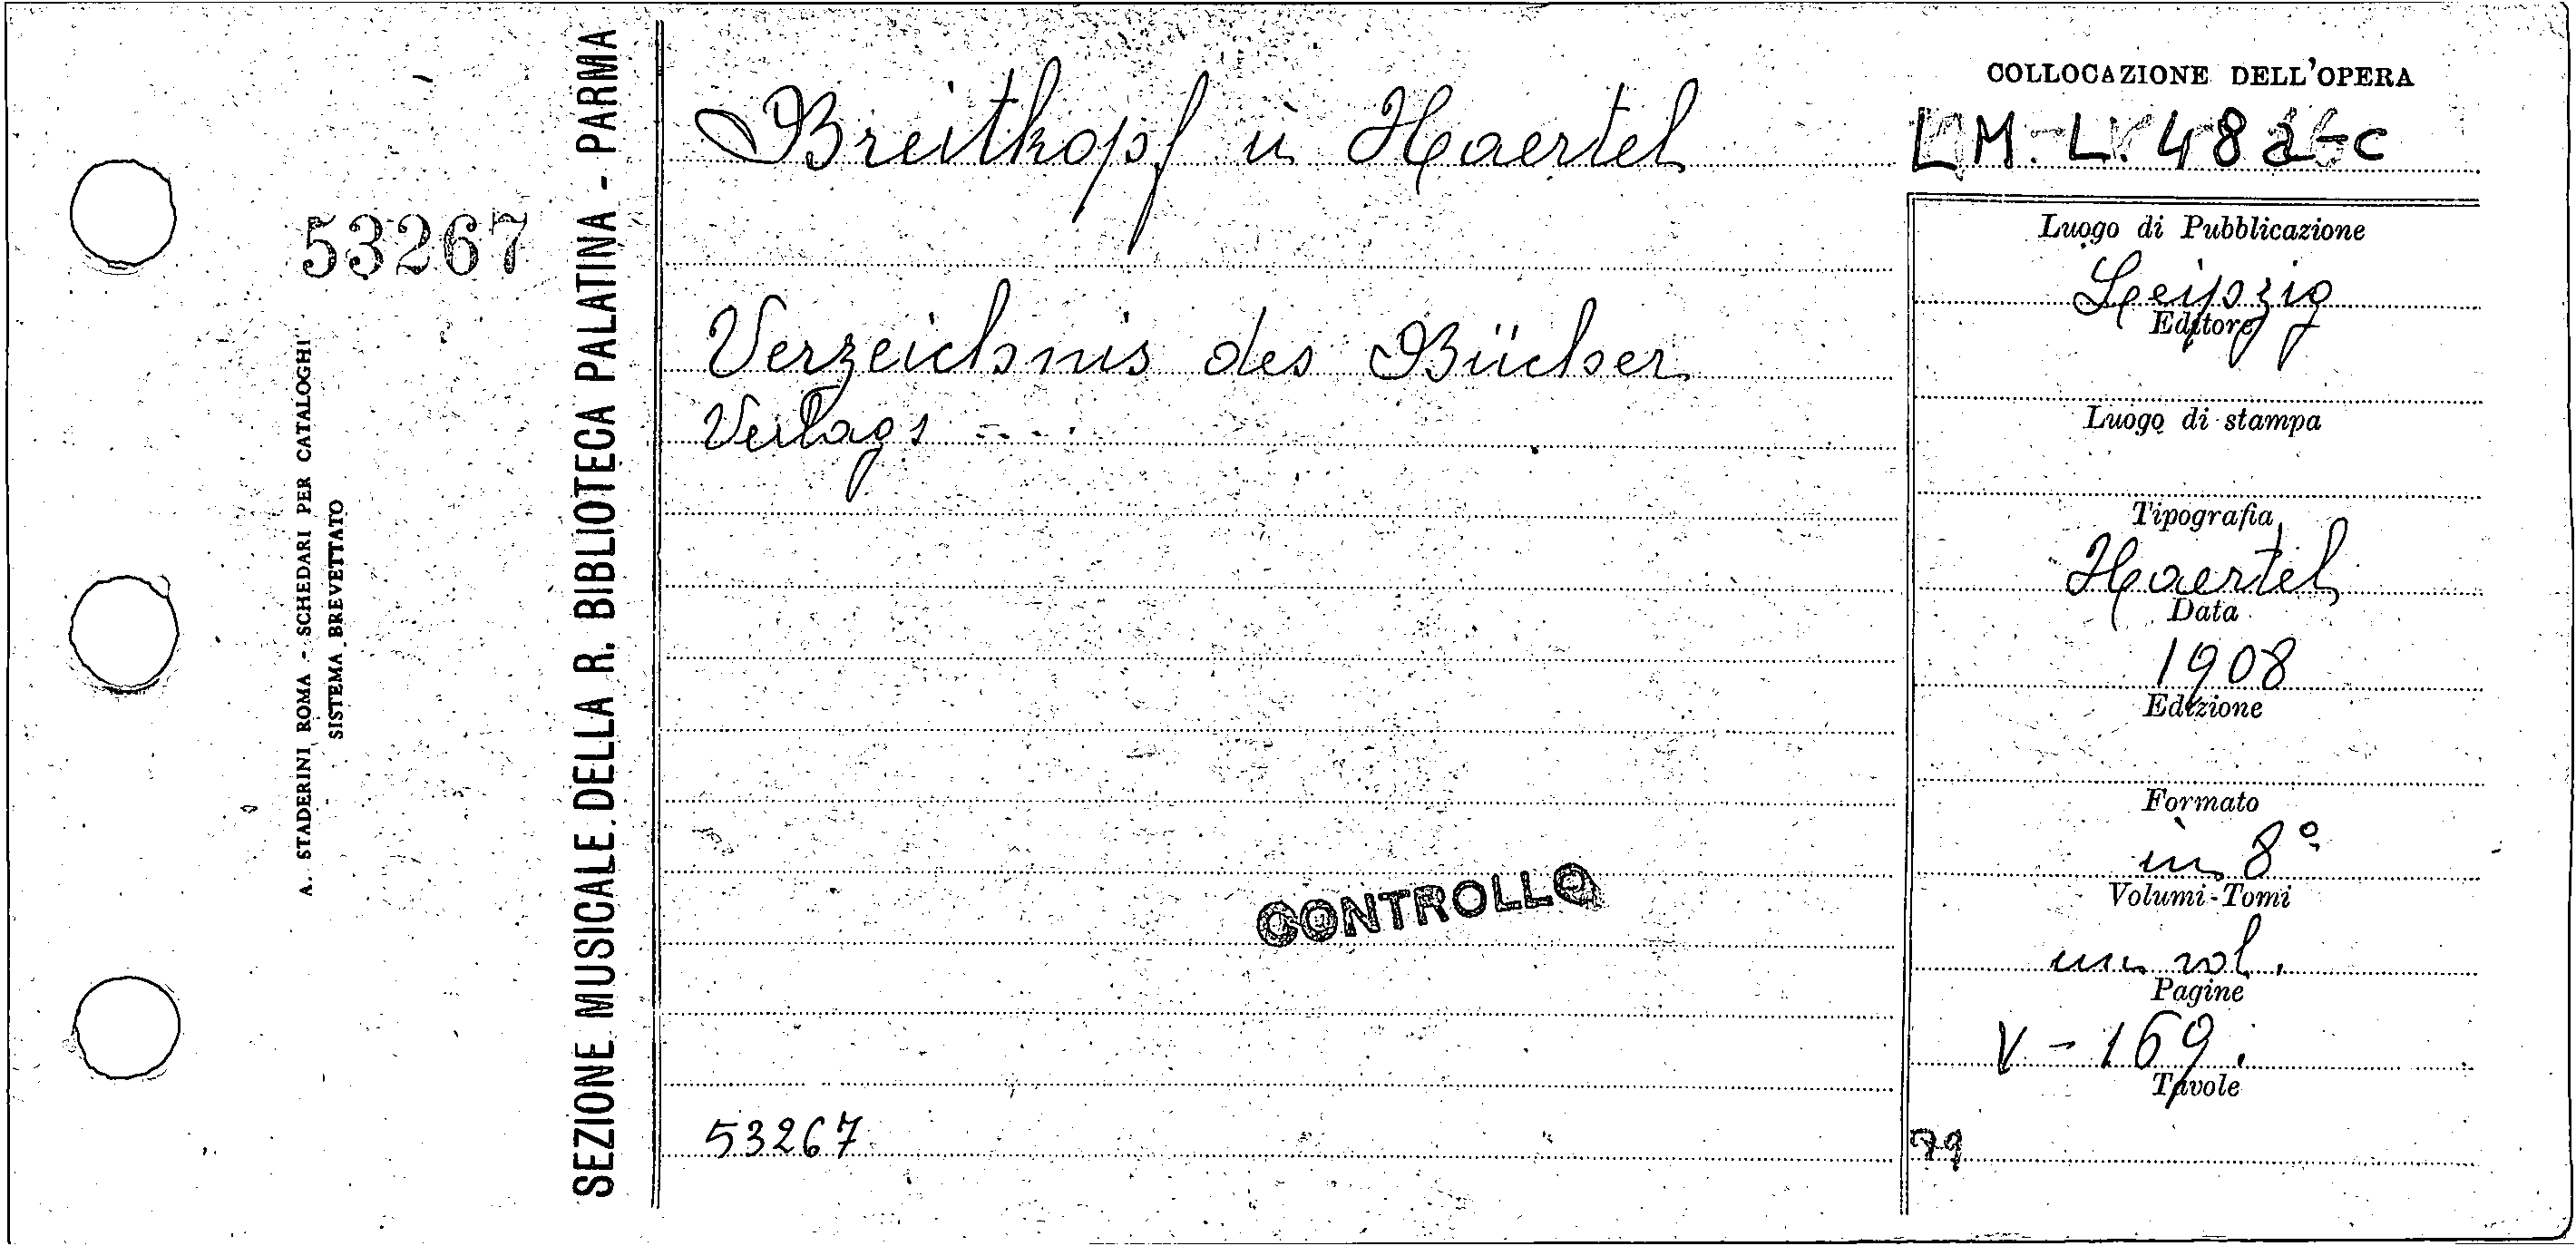 53267
A. STADERINI ROMA - SCHEDARI PER CATALOGHI
SISTEMA BREVETTATO
SEZIONE MUSICALE DELLA R. BIBLIOTECA PALATINA - PARMA
Breitkopf ù Haertel
Verzeichnis des Bücher
Verlags ....
CONTROLLO
53267
COLLOCAZIONE DELL'OPERA
M. L. 48 a-c
Luogo di Pubblicazione
Leipzig
Editore
Luogo di stampa
Tipografia
Haertel
Data
1908
Edizione
Formato
in 8°
Volumi-Tomi
un vol.
Pagine
V - 169.
Tavole
79